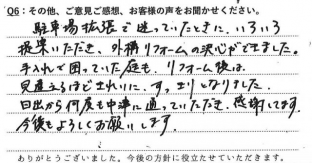 Q6：その他、ご意見ご感想、お客様の声をお聞かせください。
駐車場拡張で迷っていたときに、いろいろ
提案いただき、外構リフォームの決心ができました。
手入れで困っていた庭も、リフォーム後は、
見違えるほどきれいに、すっきりなりました。
日出から何度も中津に通っていただき、感謝してます。
今後もよろしくお願いします。
ありがとうございました。今後の方針に役立たせていただきます。